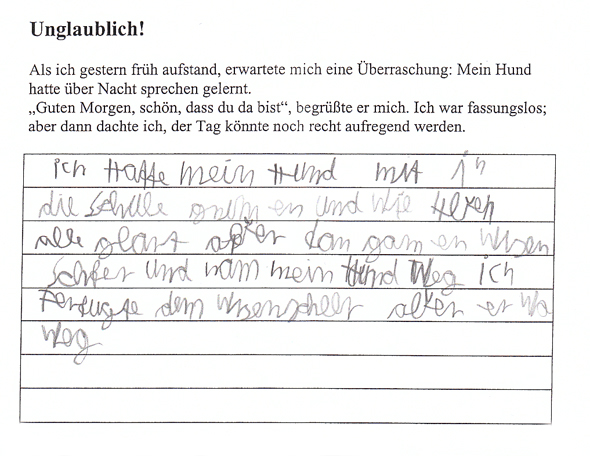 Unglaublich!
Als ich gestern früh aufstand, erwartete mich eine Überraschung: Mein Hund
hatte über Nacht sprechen gelernt.
„Guten Morgen, schön, dass du da bist“, begrüßte er mich. Ich war fassungslos;
aber dann dachte ich, der Tag könnte noch recht aufregend werden.
ich Hatte mein Hund mit in
die schule und wie
alle aber gam en
und nam mein Hund Weg ich
dem er wa
Weg